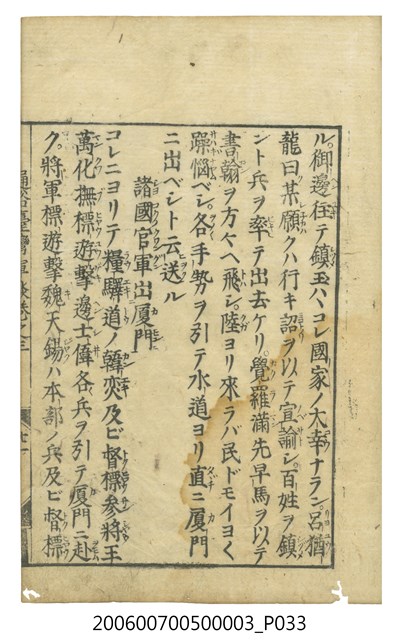 ル御邊往テ鎮玉ハヽコレ國家ノ大幸ナラン呂猶
龍曰某願クハ行キ詔ヲ以テ宣諭シ百姓ヲ鎮
ント兵ヲ率テ出去ケリ覺羅滿先早馬ヲ以テ
書翰ヲ方々ヘ飛シ陸ヨリ來ラバ民ドモイヨく
躁惱ベシ各手勢ヲ引テ水道ヨリ直ニ厦門
ニ出ベシト云送ル
諸國官軍出厦門
コレニヨリテ糧驛道ノ韓奕及ビ督標參將王
萬化撫標遊擊邊士偉各兵ヲ引テ厦門ニ赴
ク將軍標遊擊魏天錫ハ本部ノ兵及ビ督標
通俗臺灣軍談卷之三
200600700500003_P033